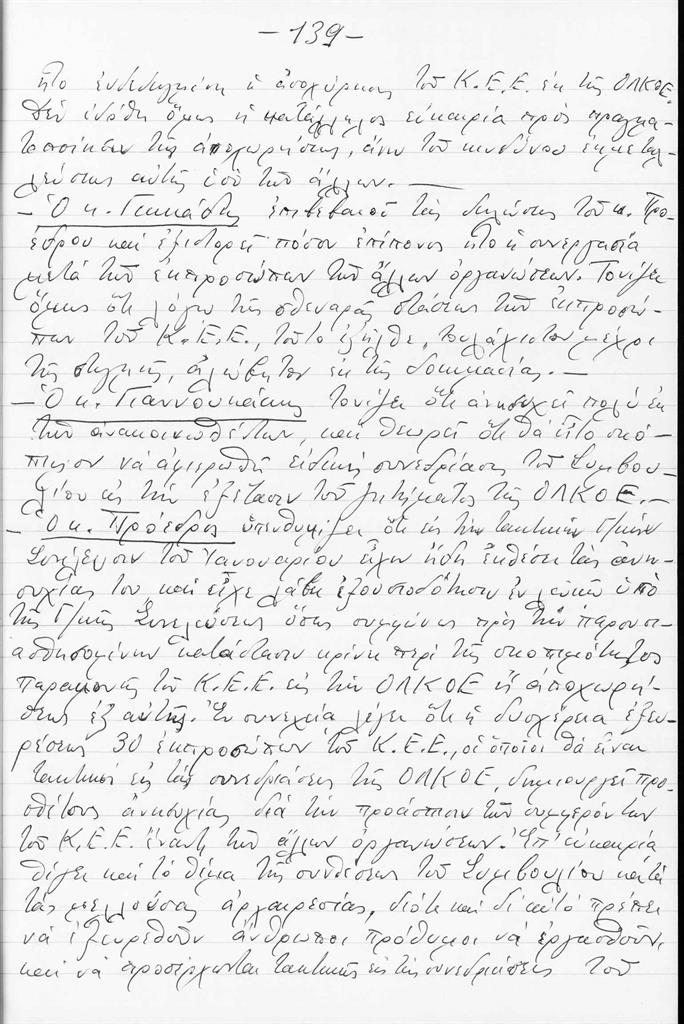 -139-
ἦτο ἐνδεδειγμένη ἡ ἀποχώρησις τοῦ Κ.Ε.Ε. ἐκ τῆς ΟΛΚΟΕ.
Δέν ἐδόθη ὅμως ἡ κατάλληλος εὐκαιρία πρός πραγμα-
τοποίησιν τῆς ἀποχωρήσεως, ἄνευ τοῦ κινδύνου ἐκμεταλ-
λεύσεως αὐτῆς ὑπό τῶν ἄλλων. —
- Ὁ κ. Γικάδης ἐπιβεβαιοῖ τάς δηλώσεις τοῦ κ. Προ-
έδρου καί ἐξιστορεῖ πόσον ἐπίπονος ἦτο ἡ συνεργασία
μετά τῶν ἐκπροσώπων τῶν ἄλλων ὀργανώσεων. Τονίζει
ὅμως ὅτι λόγῳ τῆς σθεναρᾶς στάσεως τῶν ἐκπροσώ-
πων τοῦ Κ.Ε.Ε., τοῦτο ἐξῆλθε, τουλάχιστον μέχρι
τῆς στιγμῆς, ἀλώβητον ἐκ τῆς δοκιμασίας. —
- Ὁ κ. Γιαννουκάκης τονίζει ὅτι ἀνησυχεῖ πολύ ἐκ
τῶν ἀνακοινωθέντων, καί θεωρεῖ ὅτι θά ἦτο σκό-
πιμον νά ἀφιερωθῇ εἰδική συνεδρίασις τοῦ Συμβου-
λίου εἰς τήν ἐξέτασιν τοῦ ζητήματος τῆς ΟΛΚΟΕ. —
- Ὁ κ. Πρόεδρος ὑπενθυμίζει ὅτι εἰς τήν τακτικήν Γ/κήν
Συνέλευσιν τοῦ Ἰανουαρίου εἶχεν ἤδη ἐκθέσει τάς ἀνη-
συχίας του καί εἶχε λάβει ἐξουσιοδότησιν ἐν λευκῷ ὑπό
τῆς Γ/κῆς Συνελεύσεως ὅπως συμφώνως πρός τήν παρουσι-
ασθησομένην κατάστασιν κρίνῃ περί τῆς σκοπιμότητος
παραμονῆς τοῦ Κ.Ε.Ε. εἰς τήν ΟΛΚΟΕ ἤ ἀποχωρή-
σεως ἐξ αὐτῆς. Ἐν συνεχείᾳ λέγει ὅτι ἡ δυσχέρεια ἐξευ-
ρέσεως 30 ἐκπροσώπων τοῦ Κ.Ε.Ε., οἱ ὁποῖοι θά εἶναι
τακτικοί εἰς τάς συνεδριάσεις τῆς ΟΛΚΟΕ, δημιουργεῖ προ-
σθέτους ἀνησυχίας διά τήν προάσπισιν τῶν συμφερόντων
τοῦ Κ.Ε.Ε. ἔναντι τῶν ἄλλων ὀργανώσεων. Ἐπ' εὐκαιρίᾳ
θίγει καί τό θέμα τῆς συνθέσεως τοῦ Συμβουλίου κατά
τάς μελλούσας ἀρχαιρεσίας, διότι καί δι' αὐτό πρέπει
νά ἐξευρεθοῦν ἄνθρωποι πρόθυμοι νά ἐργασθοῦν,
καί νά προσέρχωνται τακτικῶς εἰς τάς συνεδριάσεις τοῦ